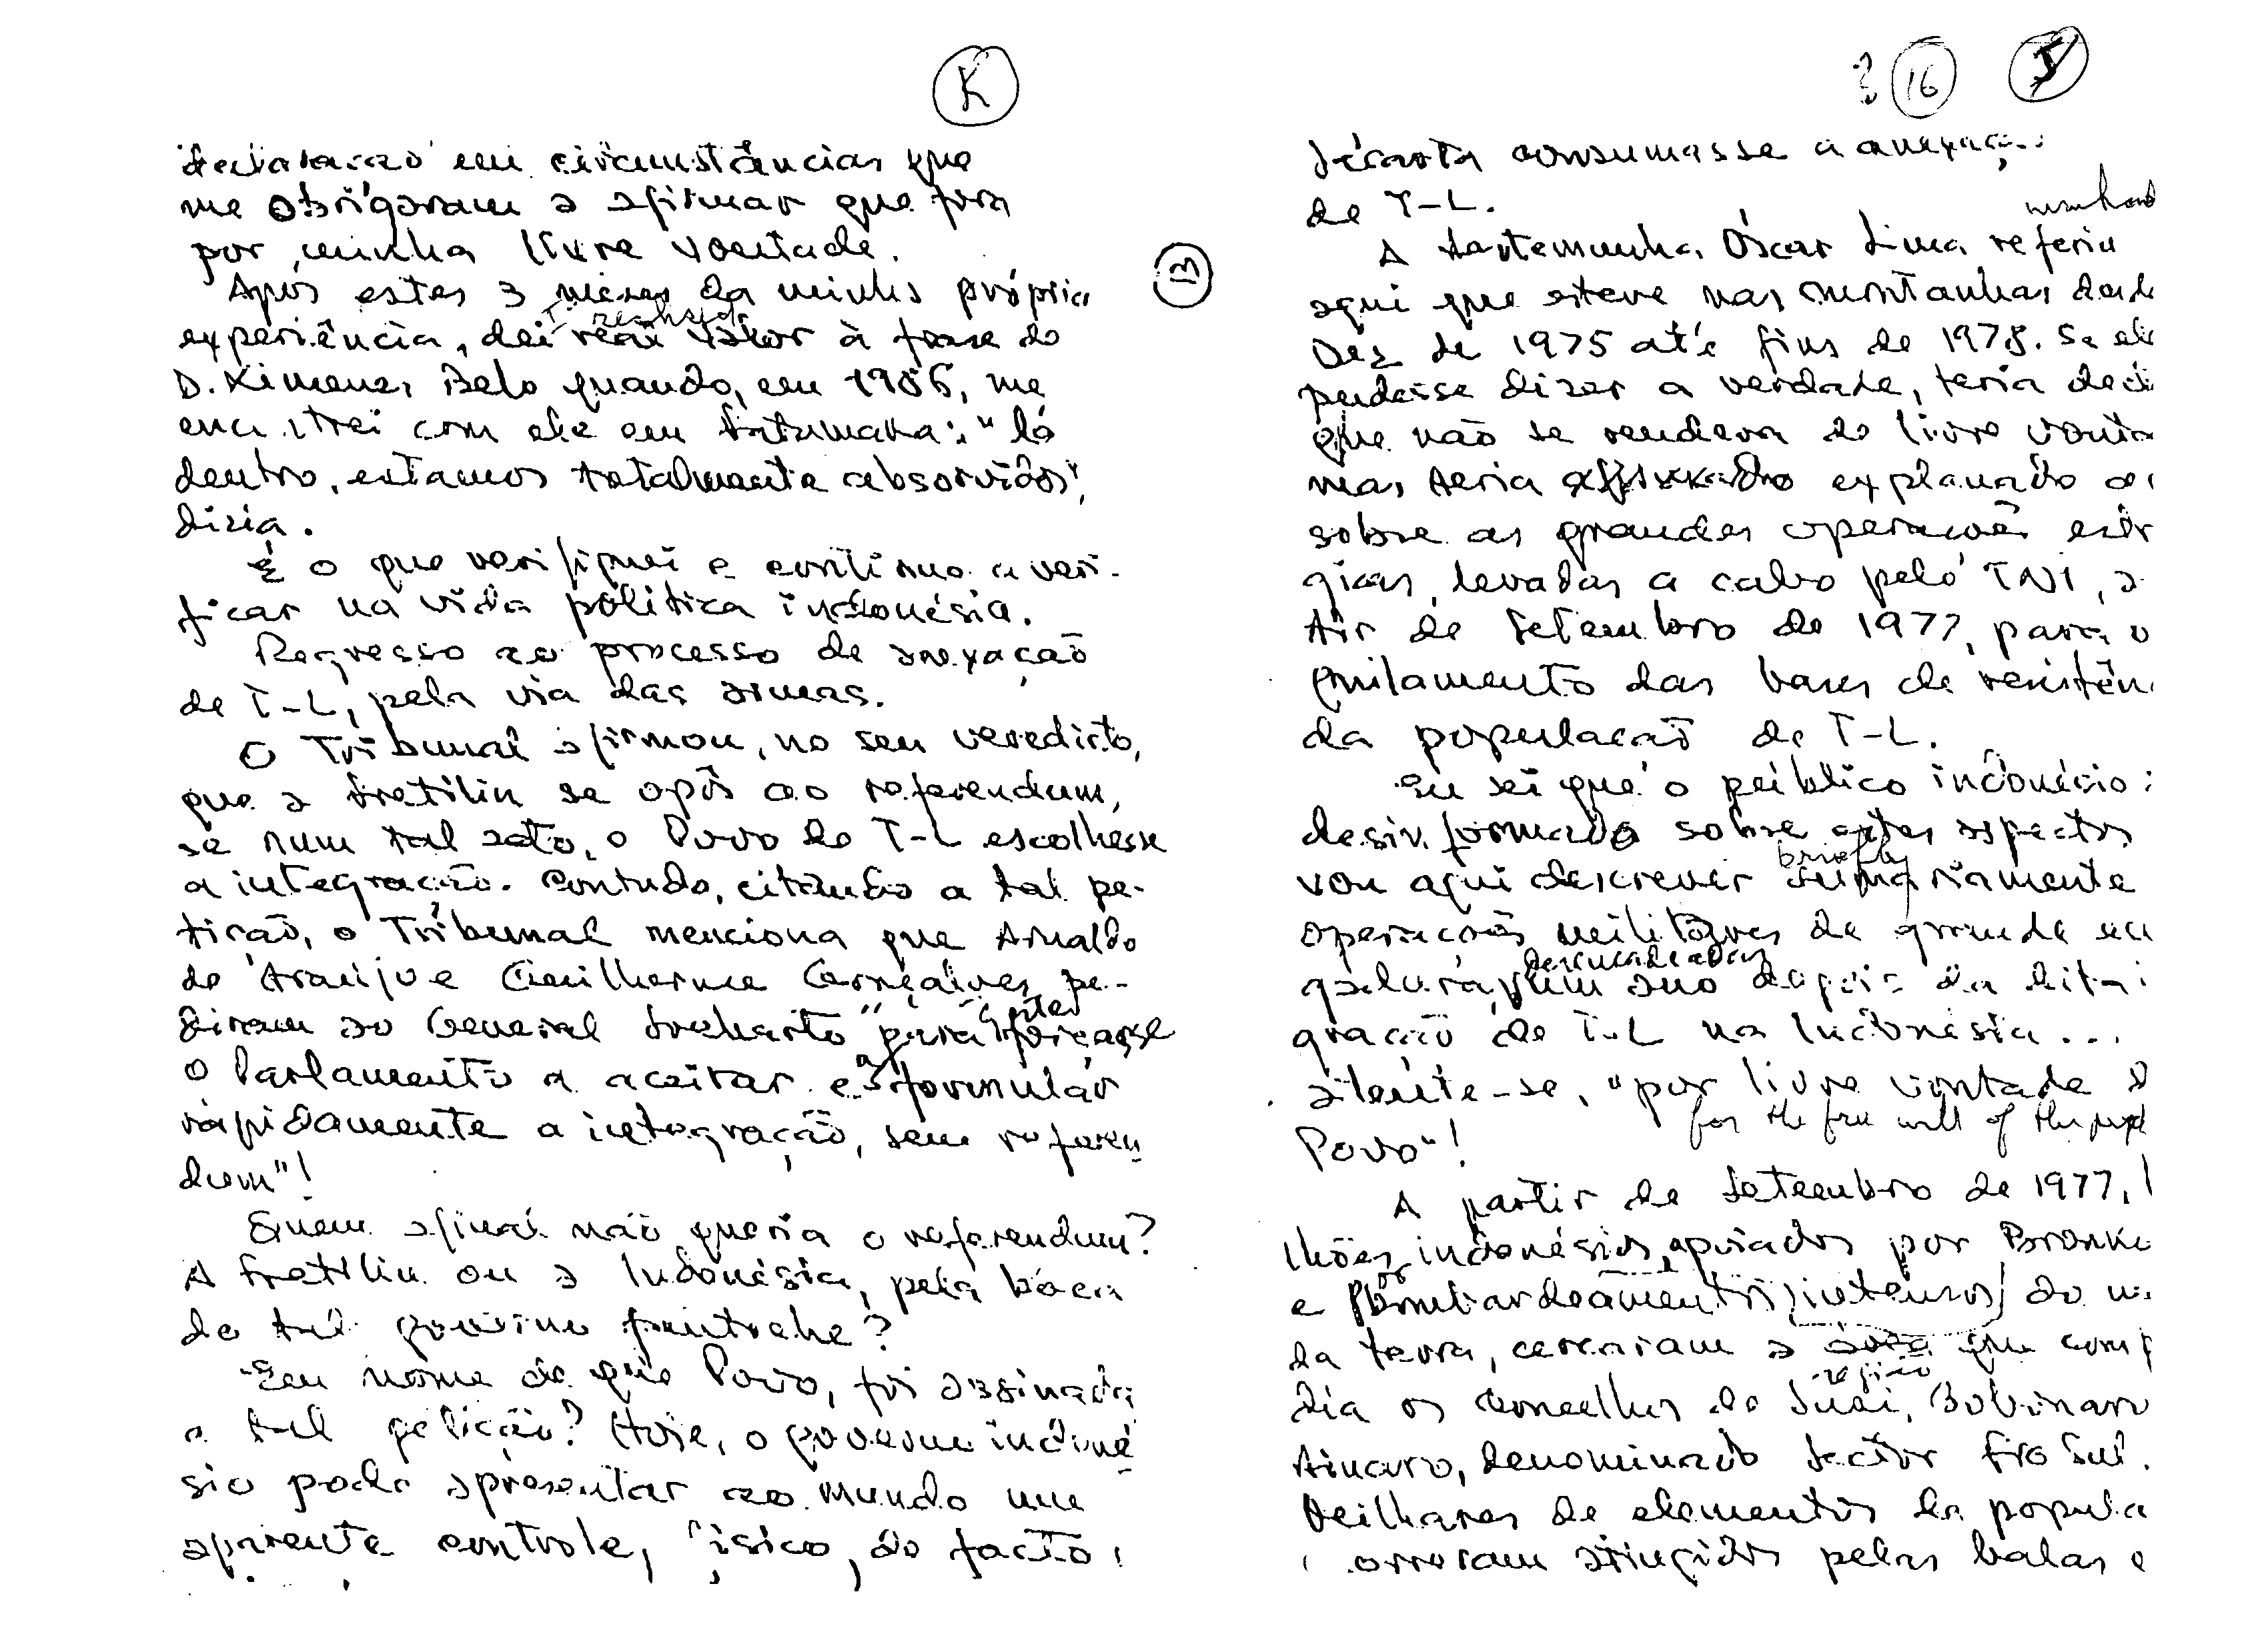 K
declaração em circunstâncias que
me obrigaram a afirmar que fora
por minha livre vontade.
Após estes 3 meses da minha própria
I realised
experiência, dei real valor à frase de
D. Ximenes Belo quando, em 1986, me
encontrei com ele em Fatumaka: "lá
dentro, estamos totalmente absorvidos",
dizia.
É o que verifiquei e continuo a veri-
ficar na vida política indonésia.
Regresso ao processo de anexação
de T-L, pela via das armas.
O Tribunal afirmou, no seu veredicto,
que a Fretilin se opôs ao referendum,
se num tal acto, o Povo de T-L escolhesse
a integração. Contudo, citando a tal pe-
tição, o Tribunal menciona que Arnaldo
de Araújo e Guilherme Gonçalves pe-
diram ao General Suharto "para
o Parlamento a aceitar e a formular
rapidamente a integração, sem referen
dum"!
Quem afinal não queria o referendum?
A Fretilin ou a Indonésia, pela boca
do tal governo fantoche?
Em nome de que Povo, foi assinada
a tal petição? Hoje, o governo indoné
sio pode apresentar ao mundo um
aparente controle, físico, do facto
3 16
Jacarta consumasse a anexaç
de T-L.
A testemunha Óscar Lima referiu
M
aqui que esteve nas montanhas desde
Dez de 1975 até fins de 1978. Se ele
pudesse dizer a verdade, teria dec
que não se rendera de livre vonta
mas teria explanado
sobre as grandes operações estr
gicas, levadas a cabo pelo TNI, a
tir de Setembro de 1977, para o
aniquilamento das bases de resistên
da população de T-L.
Eu sei que o público indonésio
desinformado sobre estes aspectos
briefly
vou aqui descrever sumariamente
operações militares de grande en
desencadeadas
gadura, um ano depois da dita i
gração de T-L na Indonésia...
atente-se, "por livre vontade d
for the free will of the peopl
Povo"!
A partir de Setembro de 1977,
lhões indonésios, apoiados por Bronko
e por bombardeamentos (intensos) do m
da terra, cercaram a área que comp
região
dia os Concelhos de Suai, Bobonaro
Ainaro, denominado Sector Fro Sul.
Milhares de elementos da popula
morreram atingidos pelas balas e